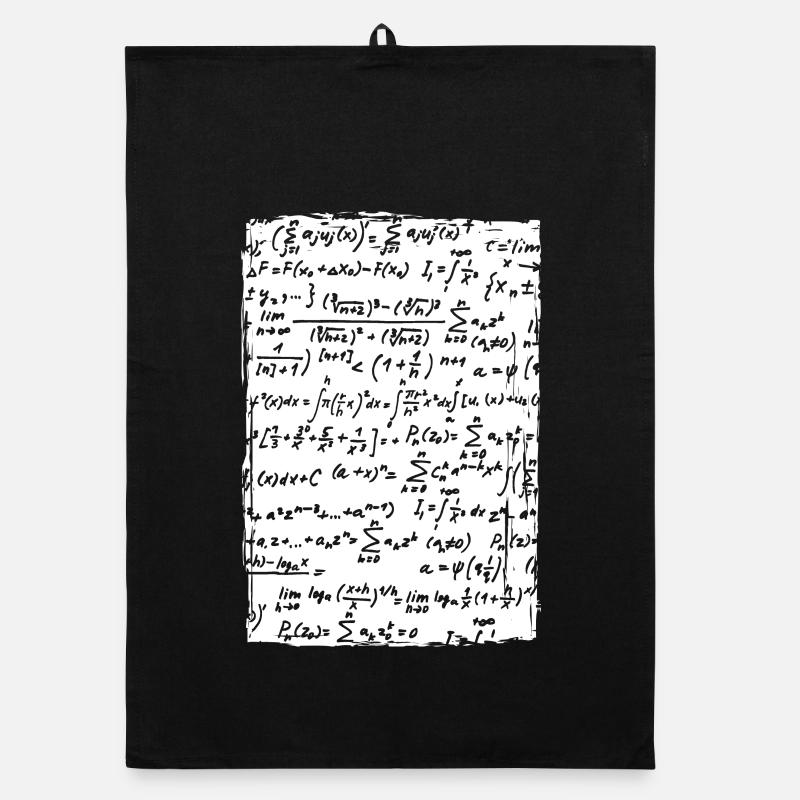 (∑_{j=1}^{n} a_j u_j(x))' = ∑_{j=1}^{n} a_j u_j'(x) +
τ = lim
x →
ΔF = F(x₀ + Δx₀) − F(x₀) I₁ = ∫_1^{+∞} 1/x³
{x_n ±
± y₂, ... }
lim_{n→∞} ((∛(n+2))³ − (∛n)³) / ((∛(n+2))² + (∛(n+2)) ∑_{k=0}^{n} a_k z^k (a_n≠0)
1/([n]+1))^{[n+1]} < (1 + 1/n)^{n+1} a = ψ (
ψ²(x)dx = ∫^h π(r/h x)² dx = ∫_0^h πr²/h² x² dx ∫_a^x [u₁(x) + u₂(
x³ [7/3 + 3⁰/x + 5/x² + 1/x³] = + P_n(z₀) = ∑_{k=0}^{n} a_k z₀^k =
(x)dx + C (a + x)ⁿ = ∑_{k=0}^{n} C_n^k a^{n−k} x^k ∫(∑_{j=1}^{n}
z + a² z^{n−3} + ... + a^{n−1}) I₁ = ∫_1^{+∞} 1/x³ dx zⁿ − aⁿ
+ a₁ z + ... + a_n zⁿ = ∑_{k=0}^{n} a_k z^k (a_n≠0) P_n(z) =
+h) − log_a x =
a = ψ(q 1/q)
lim_{h→0} log_a ((x+h)/x)^{1/h} = lim_{h→0} log_a 1/x (1 + h/x)^{x/
P_n(z₀) = ∑_{k=0}^{n} a_k z₀^k = 0 I = ∫^{+∞}